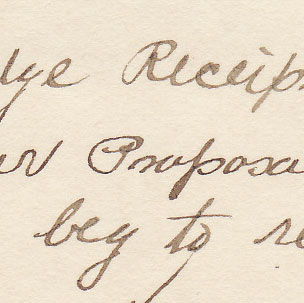 dge Receip
ur Proposa
beg to re